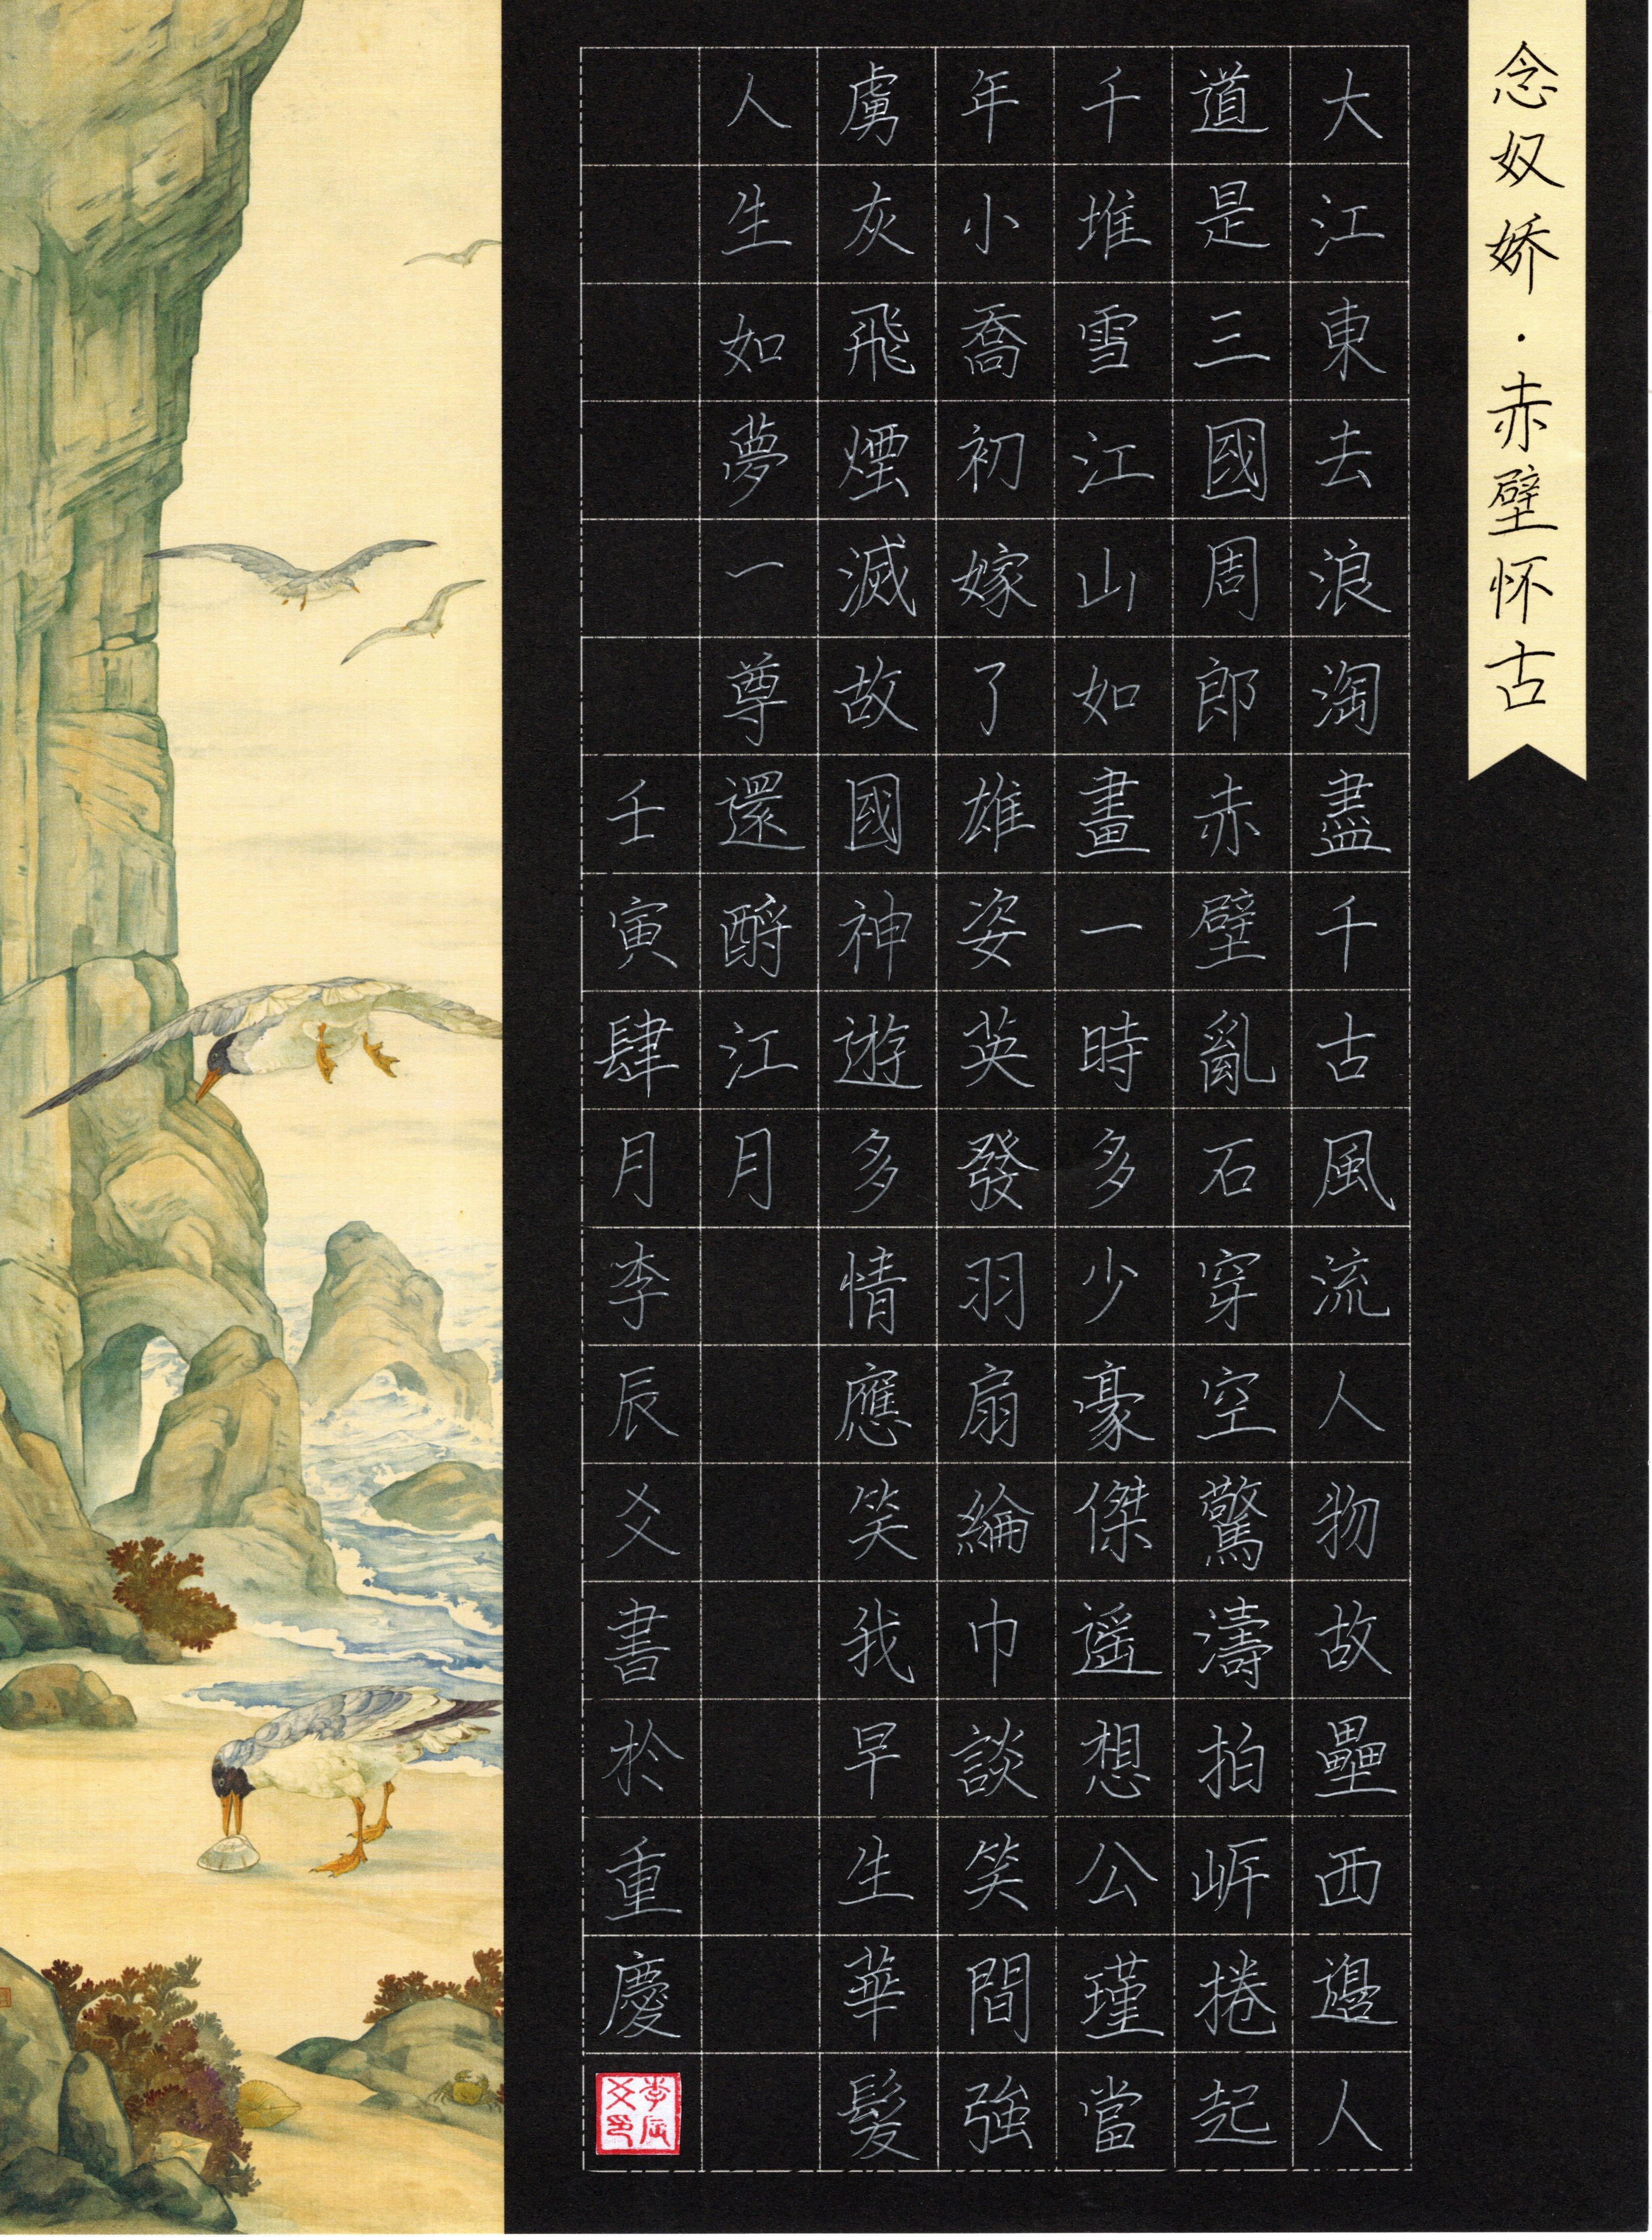 念奴娇·赤壁怀古
大江東去浪淘盡千古風流人物故壘西邉人
道是三國周郎赤壁亂石穿空驚濤拍岍捲起
千堆雪江山如畫一時多少豪傑遥想公瑾當
年小喬初嫁了雄姿英發羽扇綸巾談笑間強
虜灰飛煙滅故國神遊多情應笑我早生華髪
人生如夢一尊還酹江月
壬寅肆月李辰爻書於重慶
李辰爻印